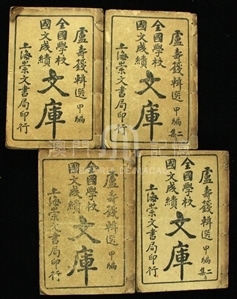 盧壽籛輯選 甲編
全國學校
國文成績
文庫
上海崇文書局印行
盧壽籛輯選 甲編 二集
全國學校
國文成績
文庫
上海崇文書局印行
盧壽籛輯選 甲編
全國學校
國文成績
文庫
上海崇文書局印行
盧壽籛輯選 甲編 二集
全國學校
國文成績
文庫
上海崇文書局印行